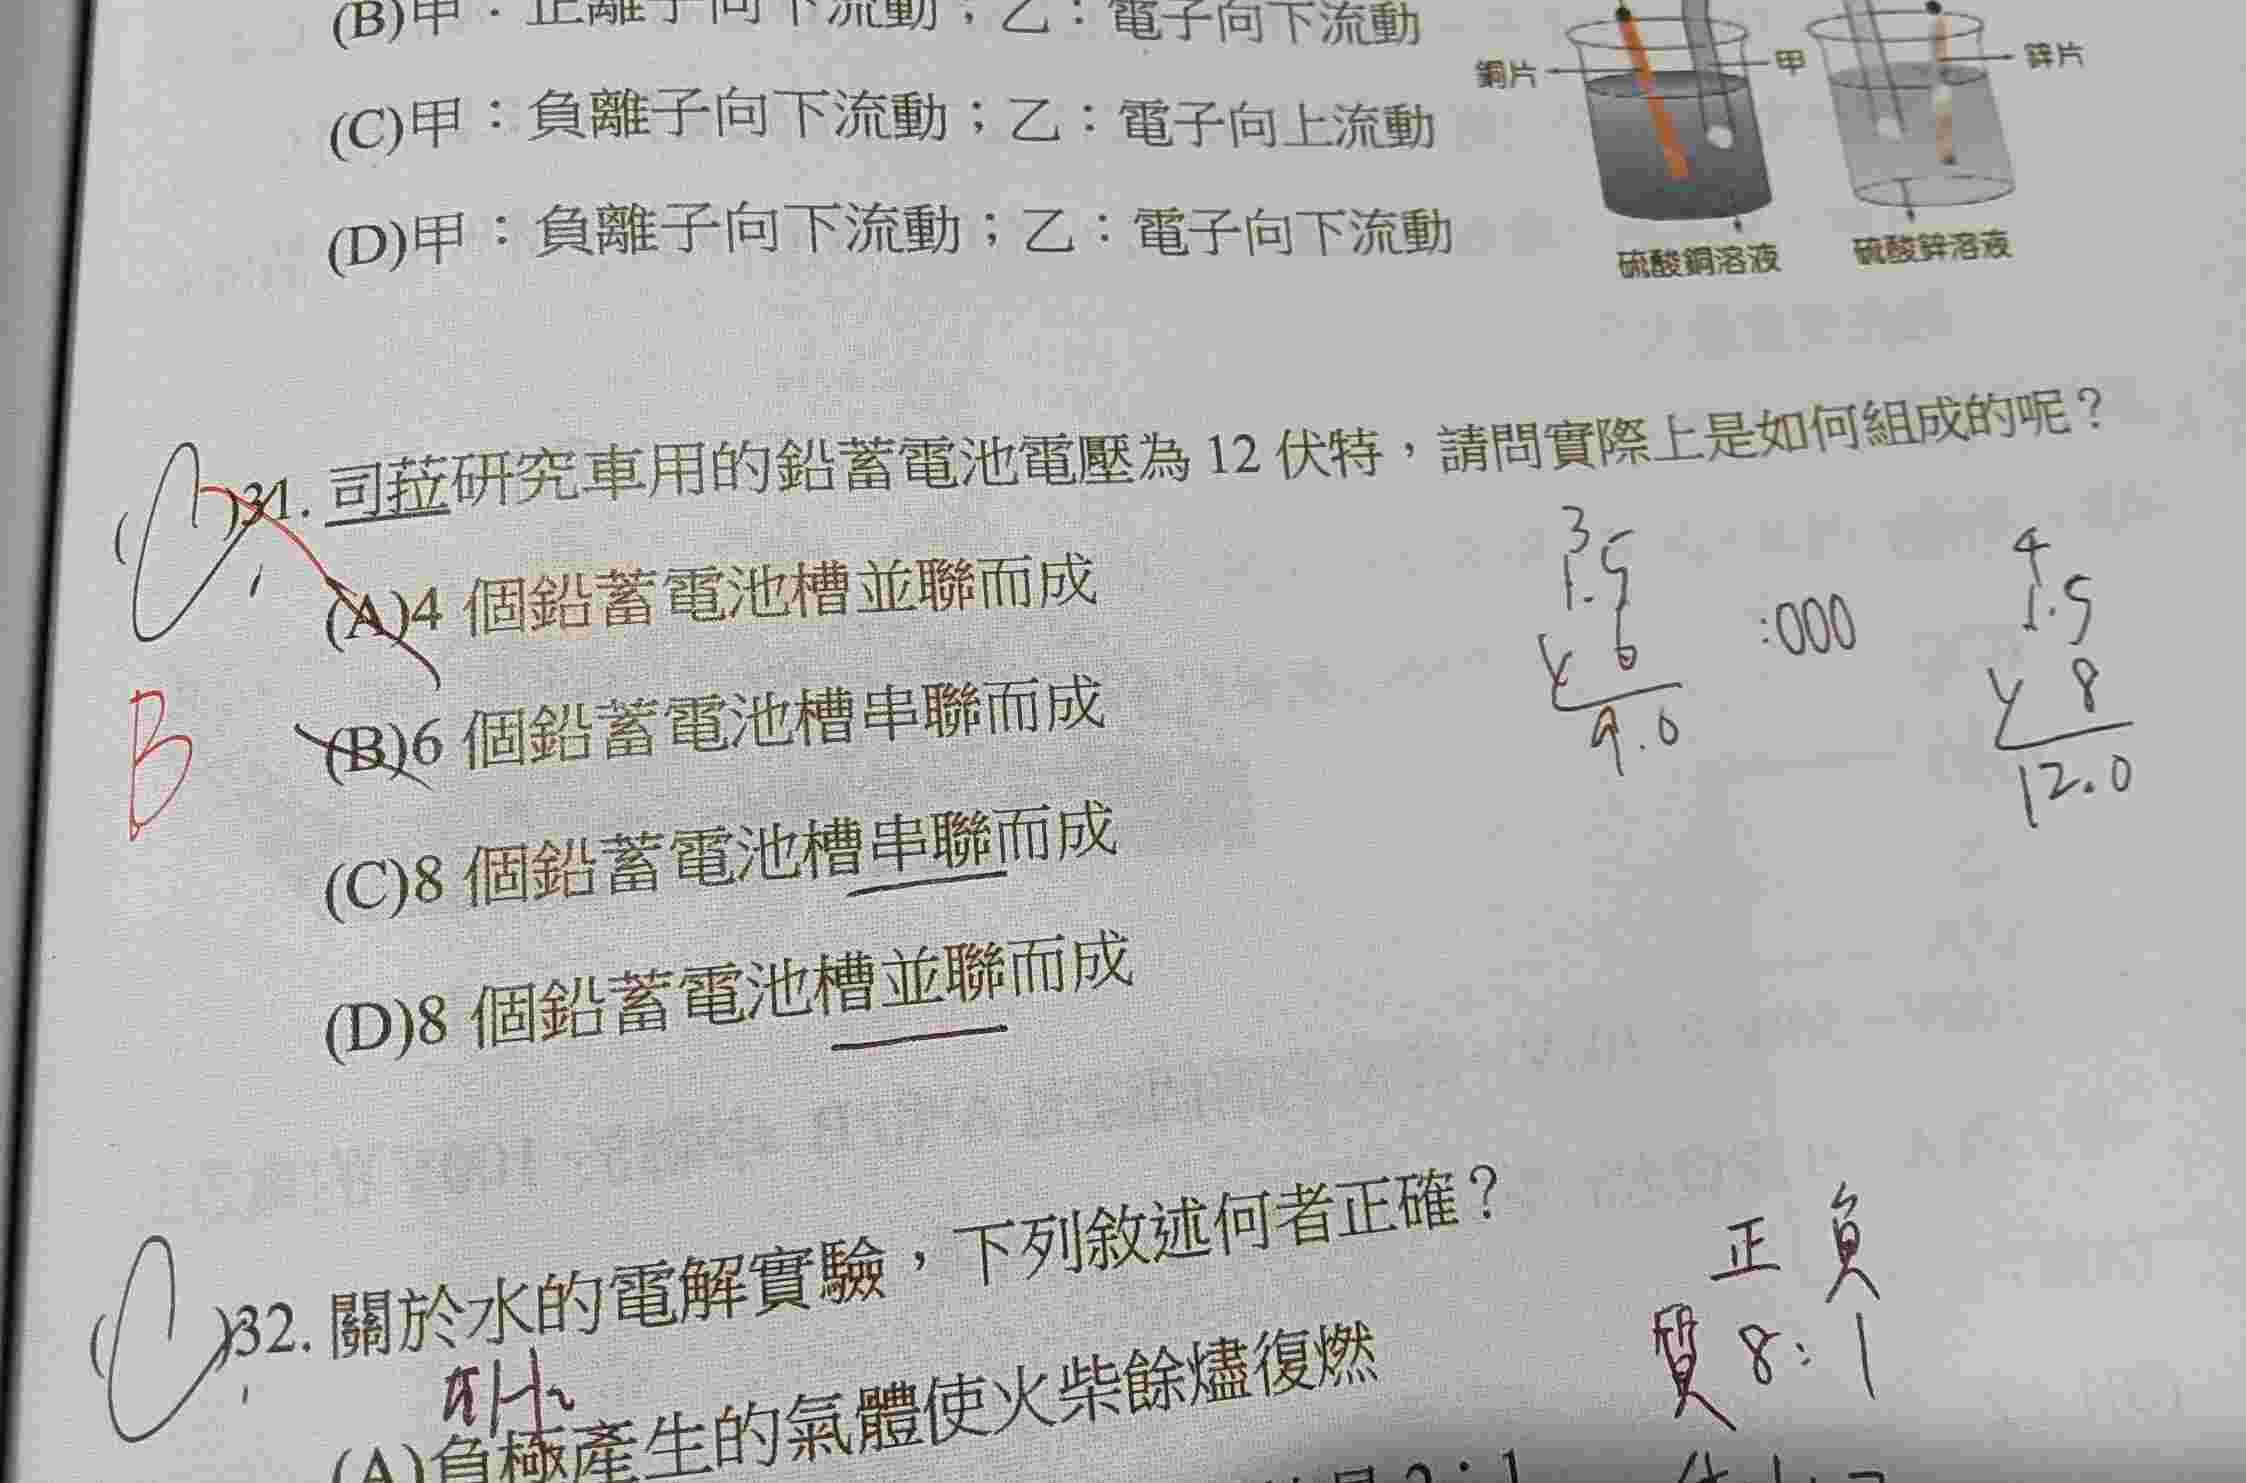 (B)甲：正離子向下流動；乙：電子向下流動
(C)甲：負離子向下流動；乙：電子向上流動
(D)甲：負離子向下流動；乙：電子向下流動
銅片
甲
鋅片
硫酸銅溶液
硫酸鋅溶液
(C)31. 司菈研究車用的鉛蓄電池電壓為 12 伏特，請問實際上是如何組成的呢？
(A)4 個鉛蓄電池槽並聯而成
B
(B)6 個鉛蓄電池槽串聯而成
(C)8 個鉛蓄電池槽串聯而成
(D)8 個鉛蓄電池槽並聯而成
3
1.5
× 6
9.0
:000
4
1.5
× 8
12.0
(C)32. 關於水的電解實驗，下列敘述何者正確？
(A)負極產生的氣體使火柴餘燼復燃
正 負
質 8:1
2：1